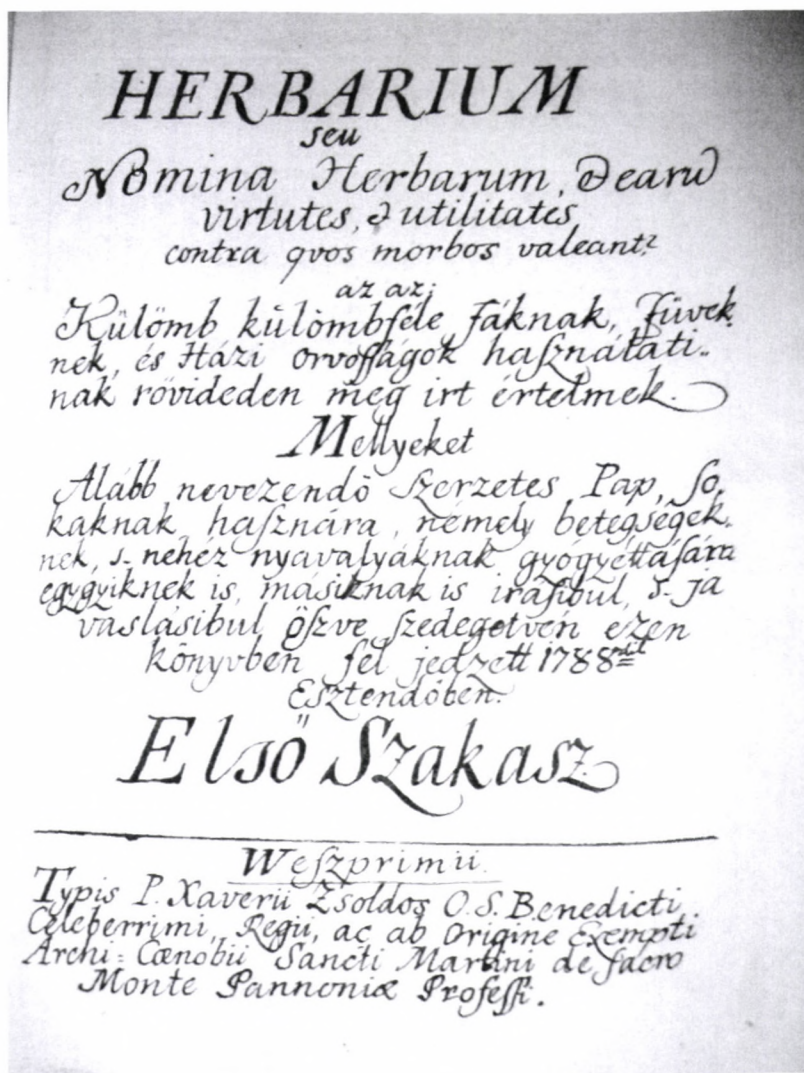 HERBARIUM
seu
Nomina Herbarum, & earū
virtutes, & utilitates
contra qvos morbos valeant?
az az:
Külömb külömbféle fáknak, füvek-
nek, és Házi orvosságok hasznátati-
nak rövideden meg irt értelmek.
Mellyeket
Alább nevezendő Szerzetes Pap, so-
kaknak hasznára, némely betegségek-
nek, s. nehéz nyavalyáknak gyógyéttására
egygyiknek is, másiknak is irásibul, s. ja
vaslásibul öszve szedegetvén ezen
könyvben fel jedzett 1788dik
Esztendőben.
Első Szakasz.
Weszprimii.
Typis P. Xaverii Zsoldos O. S. Benedicti
Celeberrimi, Regii, ac ab Origine Exempti
Archi-Cœnobii Sancti Martini de sacro
Monte Pannoniæ Professi.